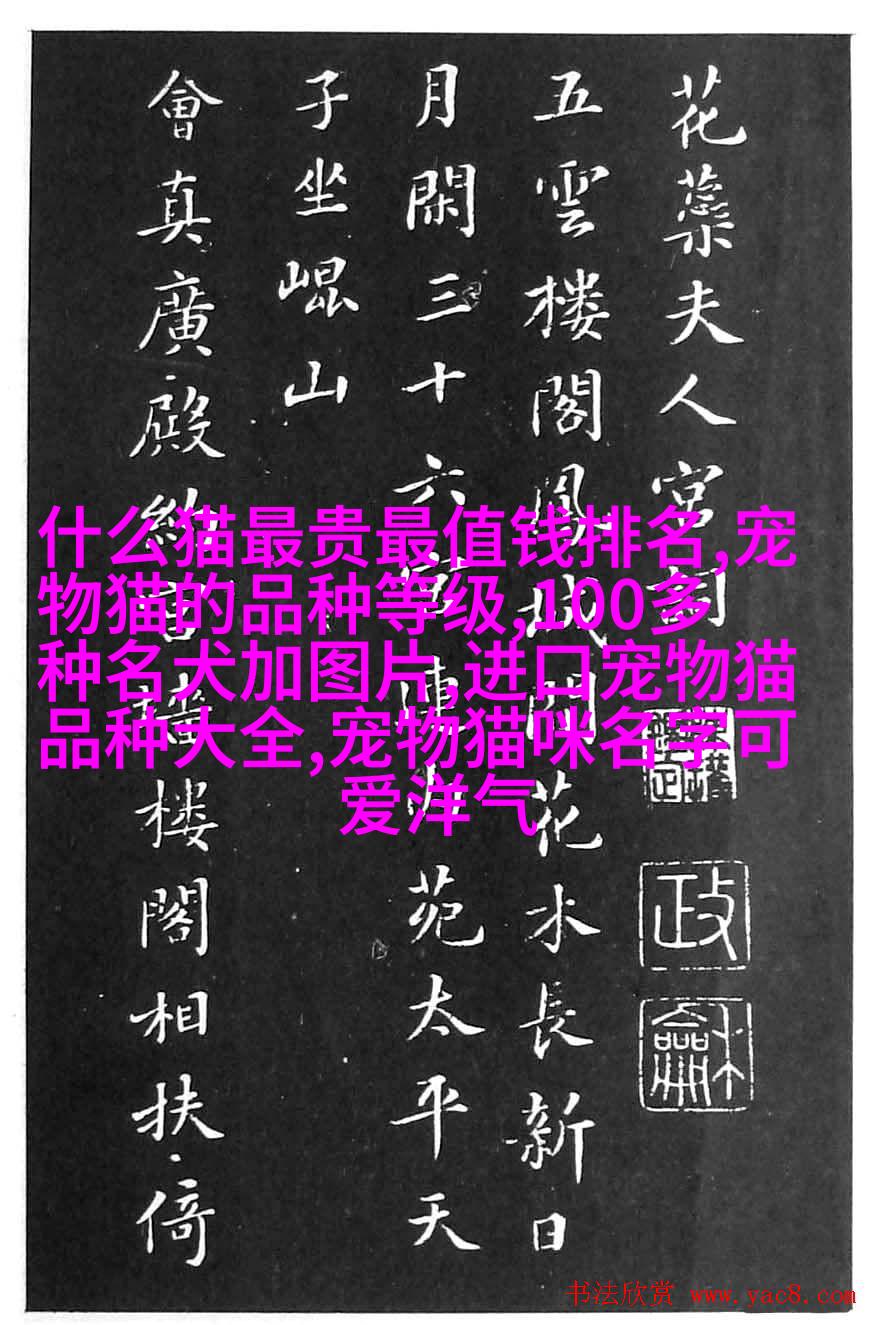 花蘂夫人宮詞
五雲楼閣鳳城間花水長新日
月閑三十六宮連内苑太平天
子坐崐山
會真廣殿約宮墻楼閣相扶倚
政
龢
什么猫最贵最值钱排名,宠
物猫的品种等级,100多
种名犬加图片,进口宠物猫
品种大全,宠物猫咪名字可
爱洋气
书法欣赏 www.yac8.com